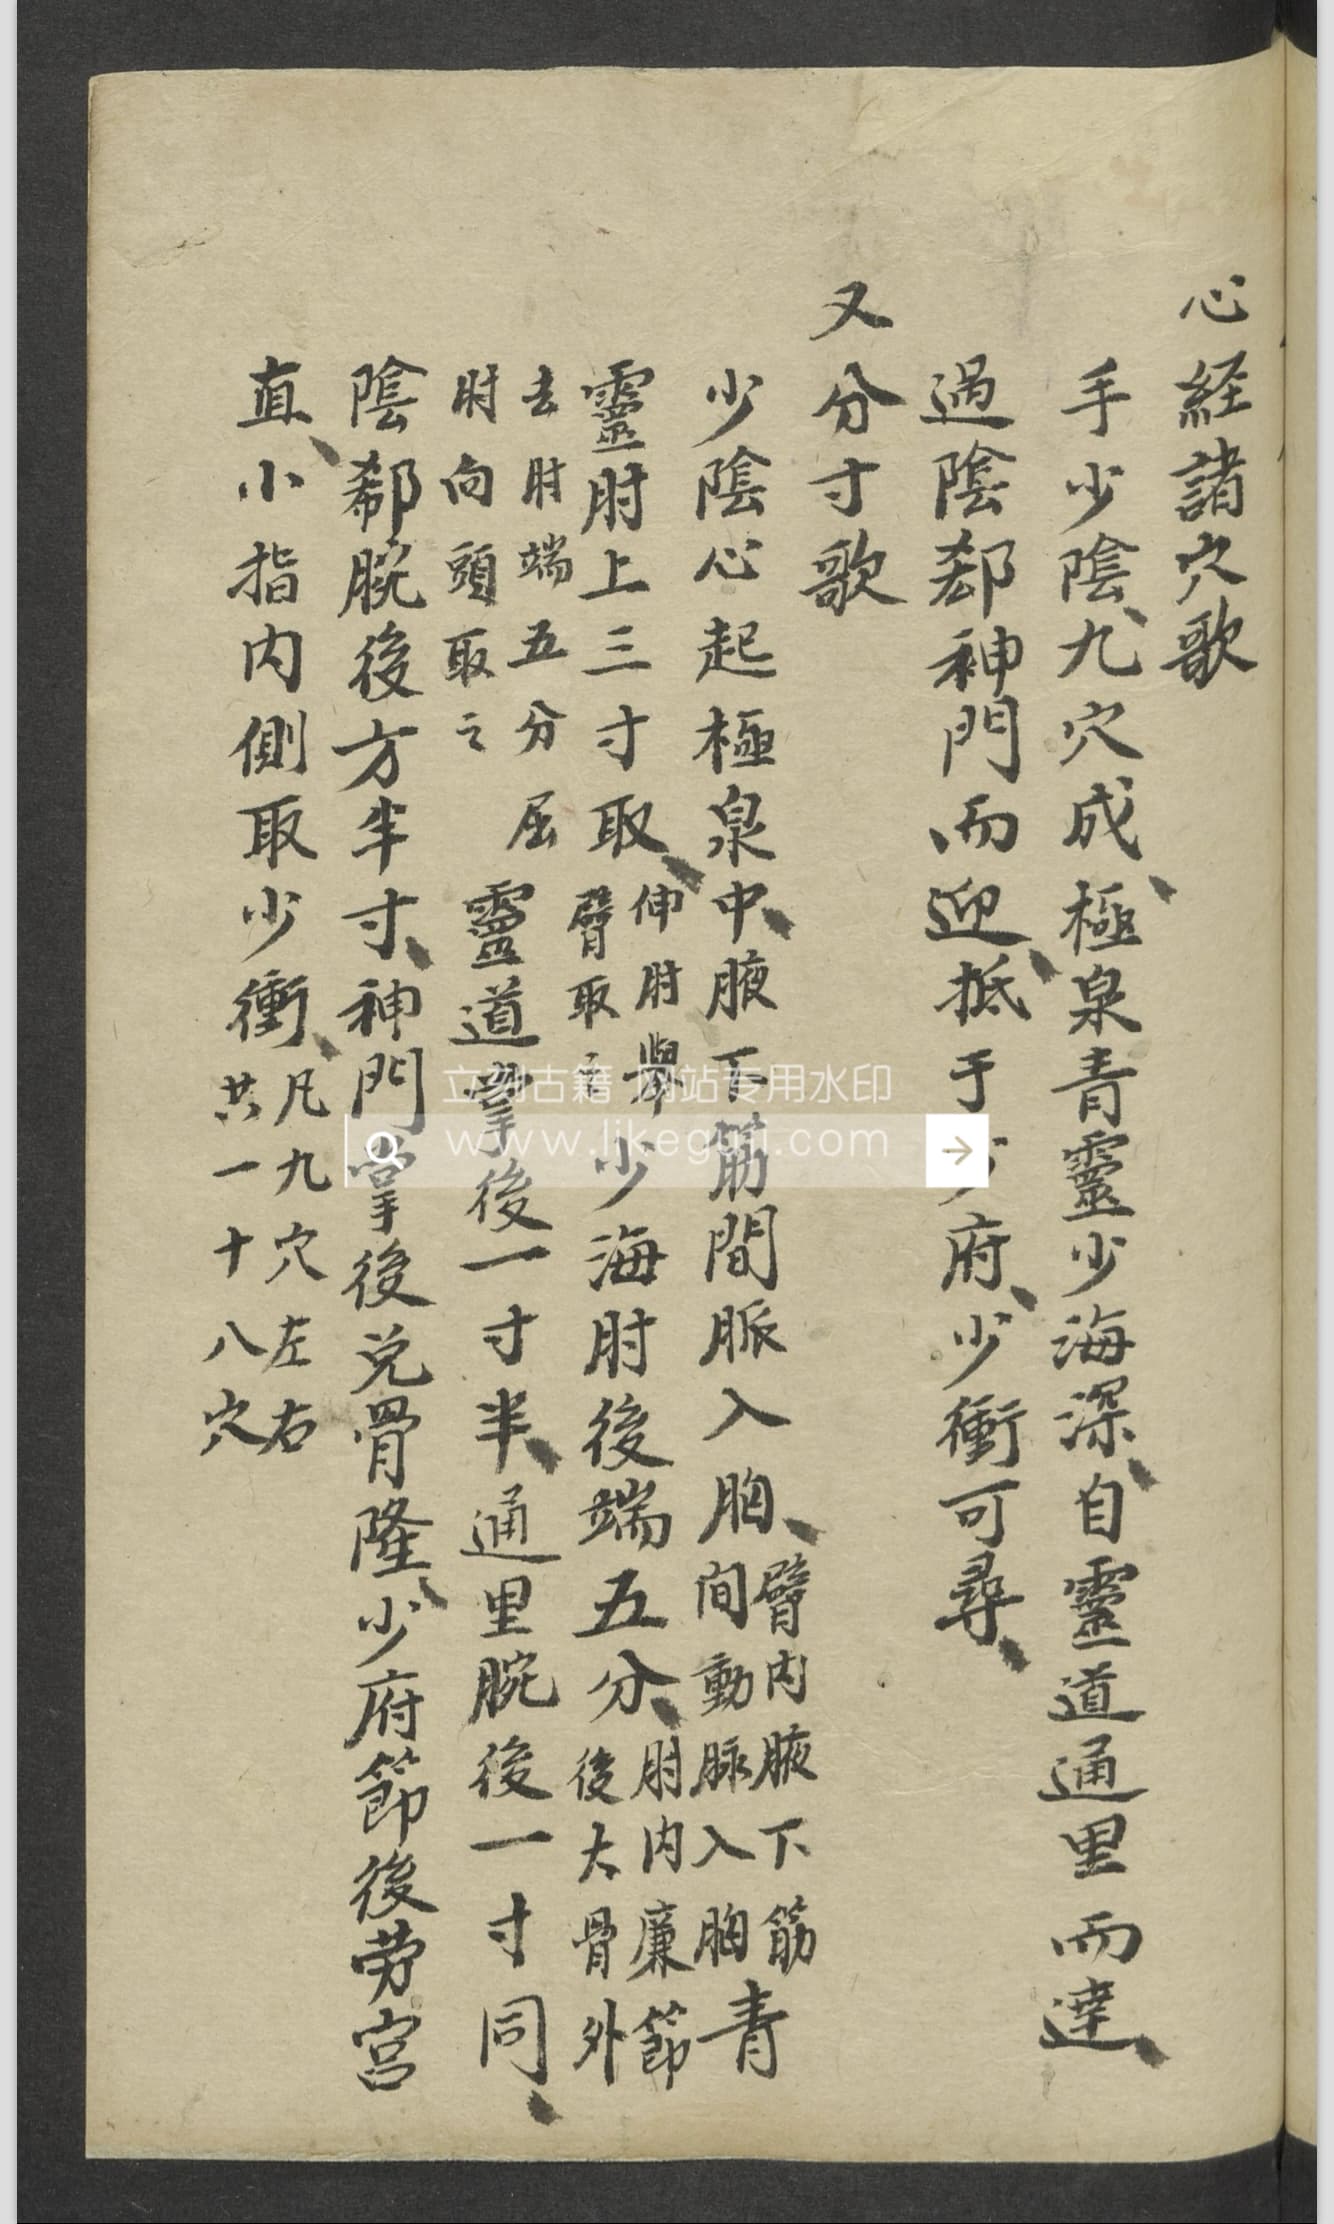 心経諸穴歌
手少陰、九穴成、極泉青靈少海深、自靈道通里而達、
過陰郄神門而迎、抵于少府、少衝可尋、
又分寸歌
少陰心起極泉中、腋下筋間脈入胸、臂内腋下筋
間動脉入胸青
靈肘上三寸取、伸肘舉
臂取之少海肘後端五分、肘内廉節
後大骨外
去肘端五分屈
肘向頭取之靈道掌後一寸半、通里腕後一寸同、
陰郄脘後方半寸、神門掌後兑骨隆、少府節後劳宫
直、小指内側取少衝、凡九穴左右
共一十八穴
立刻古籍 网站专用水印
www.likeguji.com